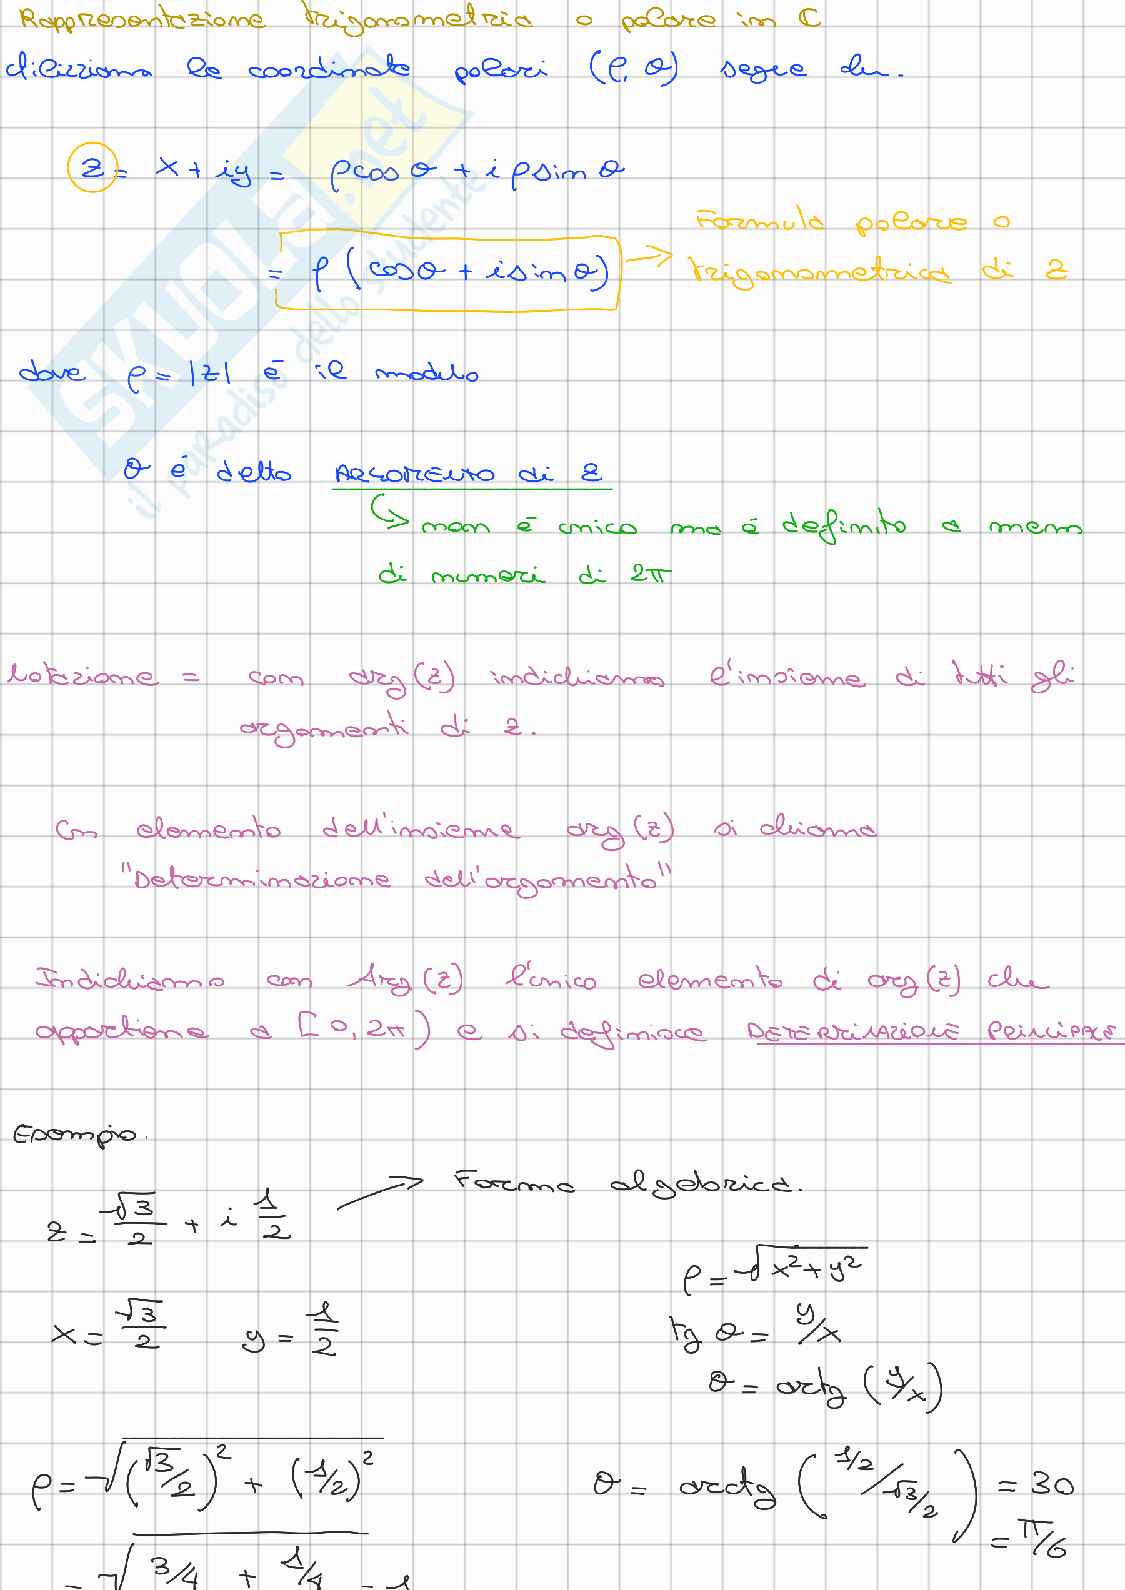 Rappresentazione trigonometrica o polare in C
Utilizziamo le coordinate polari (ρ, θ) segue che.
z = x + iy = ρcos θ + i ρ sin θ
= ρ (cos θ + i sin θ) → Formula polare o trigonometrica di z
dove ρ = |z| é il modulo
θ é detto ARGOMENTO di z
↳ non é unico ma é definito a meno
di numeri di 2π
Notazione = con arg(z) indichiamo l'insieme di tutti gli
argomenti di z.
Un elemento dell'insieme arg(z) si chiama
"Determinazione dell'argomento"
Indichiamo con Arg(z) l'unico elemento di arg(z) che
appartiene a [0, 2π) e si definisce DETERMINAZIONE PRINCIPALE
Esempio.
z = √3/2 + i 1/2 → Forma algebrica.
x = √3/2 y = 1/2
ρ = √x² + y²
tg θ = y/x
θ = arctg (y/x)
ρ = √(√3/2)² + (1/2)²
= √3/4 + 1/4 = 1
θ = arctg (1/2 / √3/2) = 30
= π/6
SKUOLA.net
il paradiso dello studente